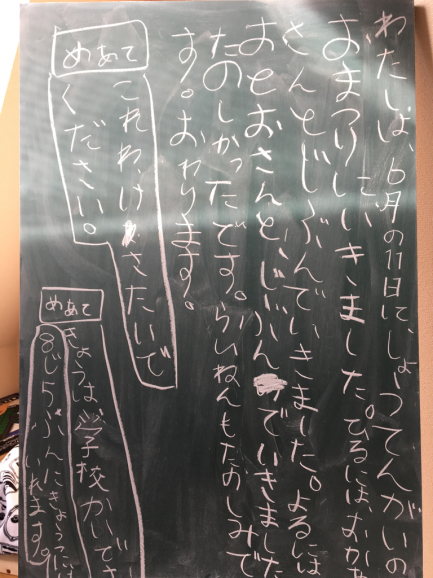 わたしは、6月の11日に、しょってんがいの
おまつりにいきました。ひるには、おかあ
さんとじぶんでいきました。よるには
おとおさんと、じぶんでいきました
たのしかったでです。らいねんもたのしみで
す。おわります。
めあて
これわ、けさたいで
ください。
めあて
きょうは、学校かいでさ
8じ5ふんにきょうしつには
いれます。